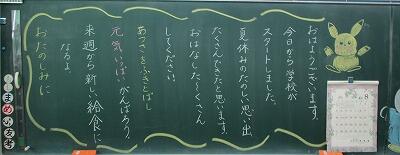 おはようございます。
今日から学校が
スタートしました。
夏休みのたのしい思い出
たくさんできたと思います。
おはなしたくさん
してください。
あつさをふきとばし
元気いっぱいがんばろう。
来週から新しい給食に
なるよ
おたのしみに
8